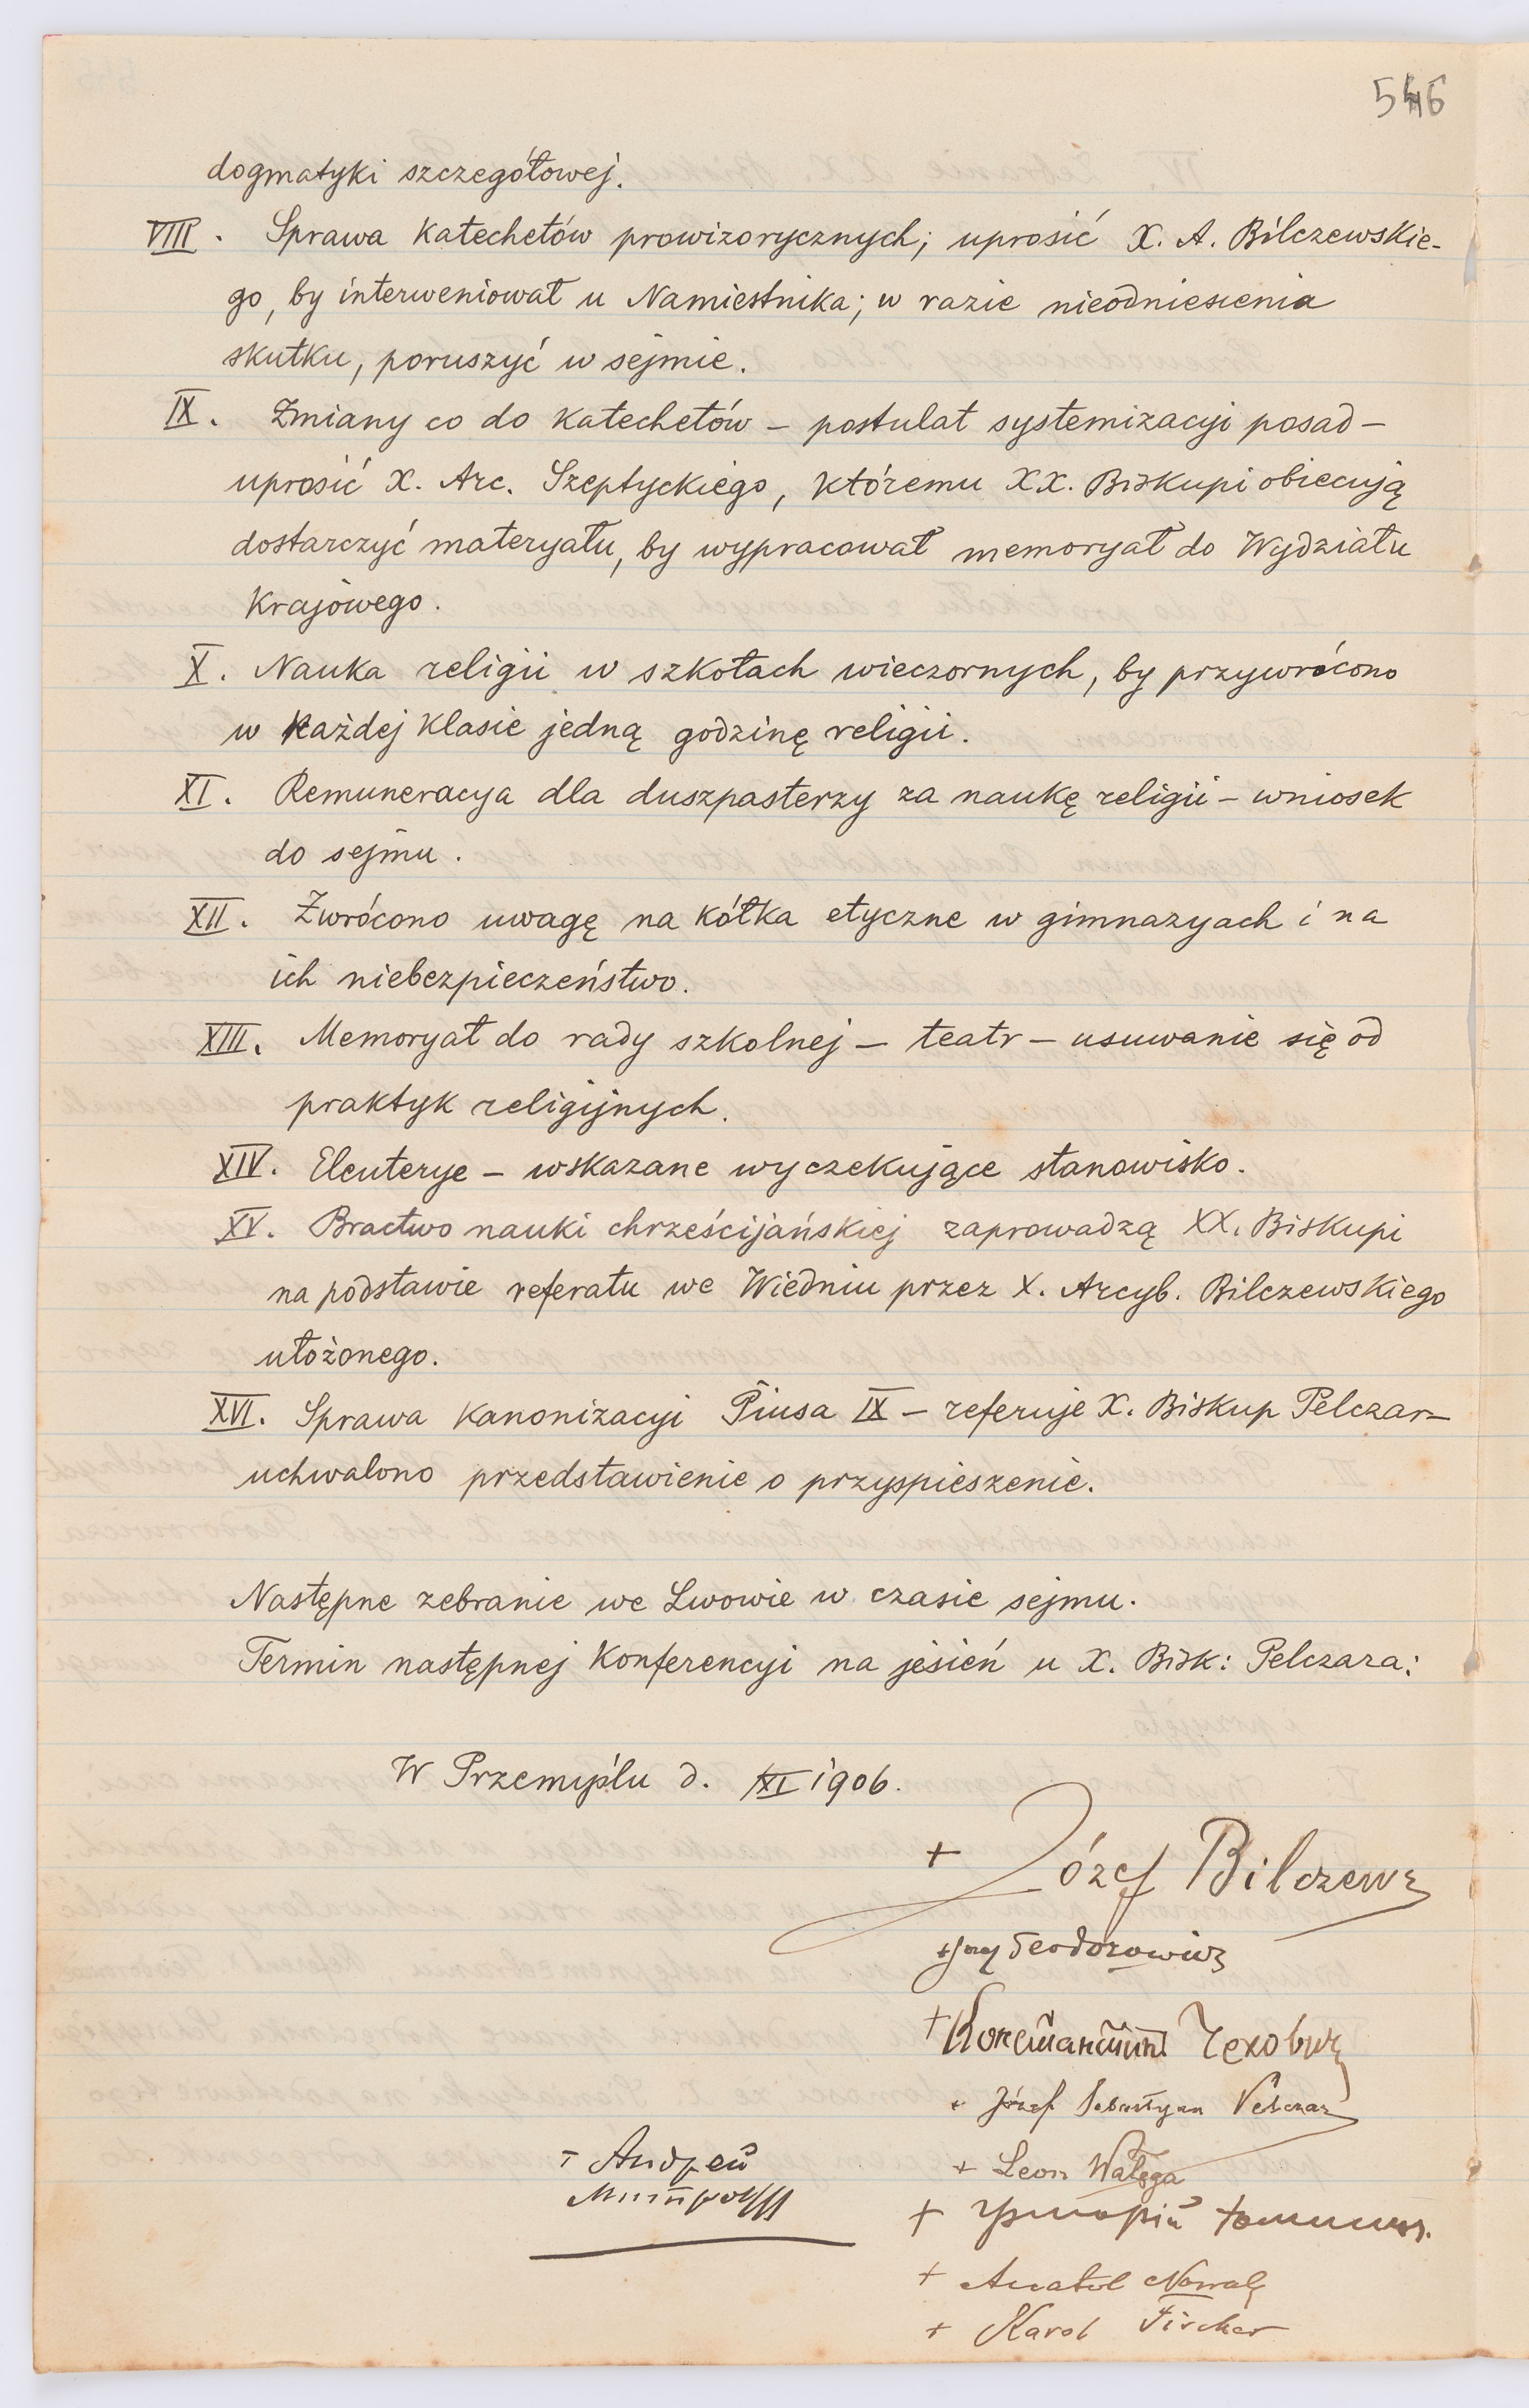 546
dogmatyki szczegółowej.
VIII. Sprawa katechetów prowizorycznych; uprosić X. A. Bilczewskie-
go, by interweniował u Namiestnika; w razie nieodniesienia
skutku, poruszyć w sejmie.
IX. Zmiany co do katechetów – postulat systemizacyi posad –
uprosić X. Arc. Szeptyckiego, któremu XX. Biskupi obiecują
dostarczyć materyału, by wypracował memoryał do Wydziału
Krajowego.
X. Nauka religii w szkołach wieczornych, by przywrócono
w każdej klasie jedną godzinę religii.
XI. Remuneracya dla duszpasterzy za naukę religii – wniosek
do sejmu.
XII. Zwrócono uwagę na kółka etyczne w gimnazyach i na
ich niebezpieczeństwo.
XIII. Memoryał do rady szkolnej – teatr – usuwanie się od
praktyk religijnych.
XIV. Eleuterye – wskazane wyczekujące stanowisko.
XV. Bractwo nauki chrześcijańskiej zaprowadzą XX. Biskupi
na podstawie referatu we Wiedniu przez X. Arcyb. Bilczewskiego
ułożonego.
XVI. Sprawa kanonizacyi Piusa IX – referuje X. Biskup Pelczar –
uchwalono przedstawienie o przyspieszenie.
Następne zebranie we Lwowie w czasie sejmu.
Termin następnej Konferencyi na jesień u X. Bisk: Pelczara:
W Przemyślu d. XI 1906.
+ Józef Bilczews
+ Józef Teodorowicz
+ Константин Чехович
+ Józef Sebastyan Pelczar
+ Андрей
+ Leon Wałęga
Митропол
+ Григорій Хомишин
+ Anatol Nowak
+ Karol Fischer